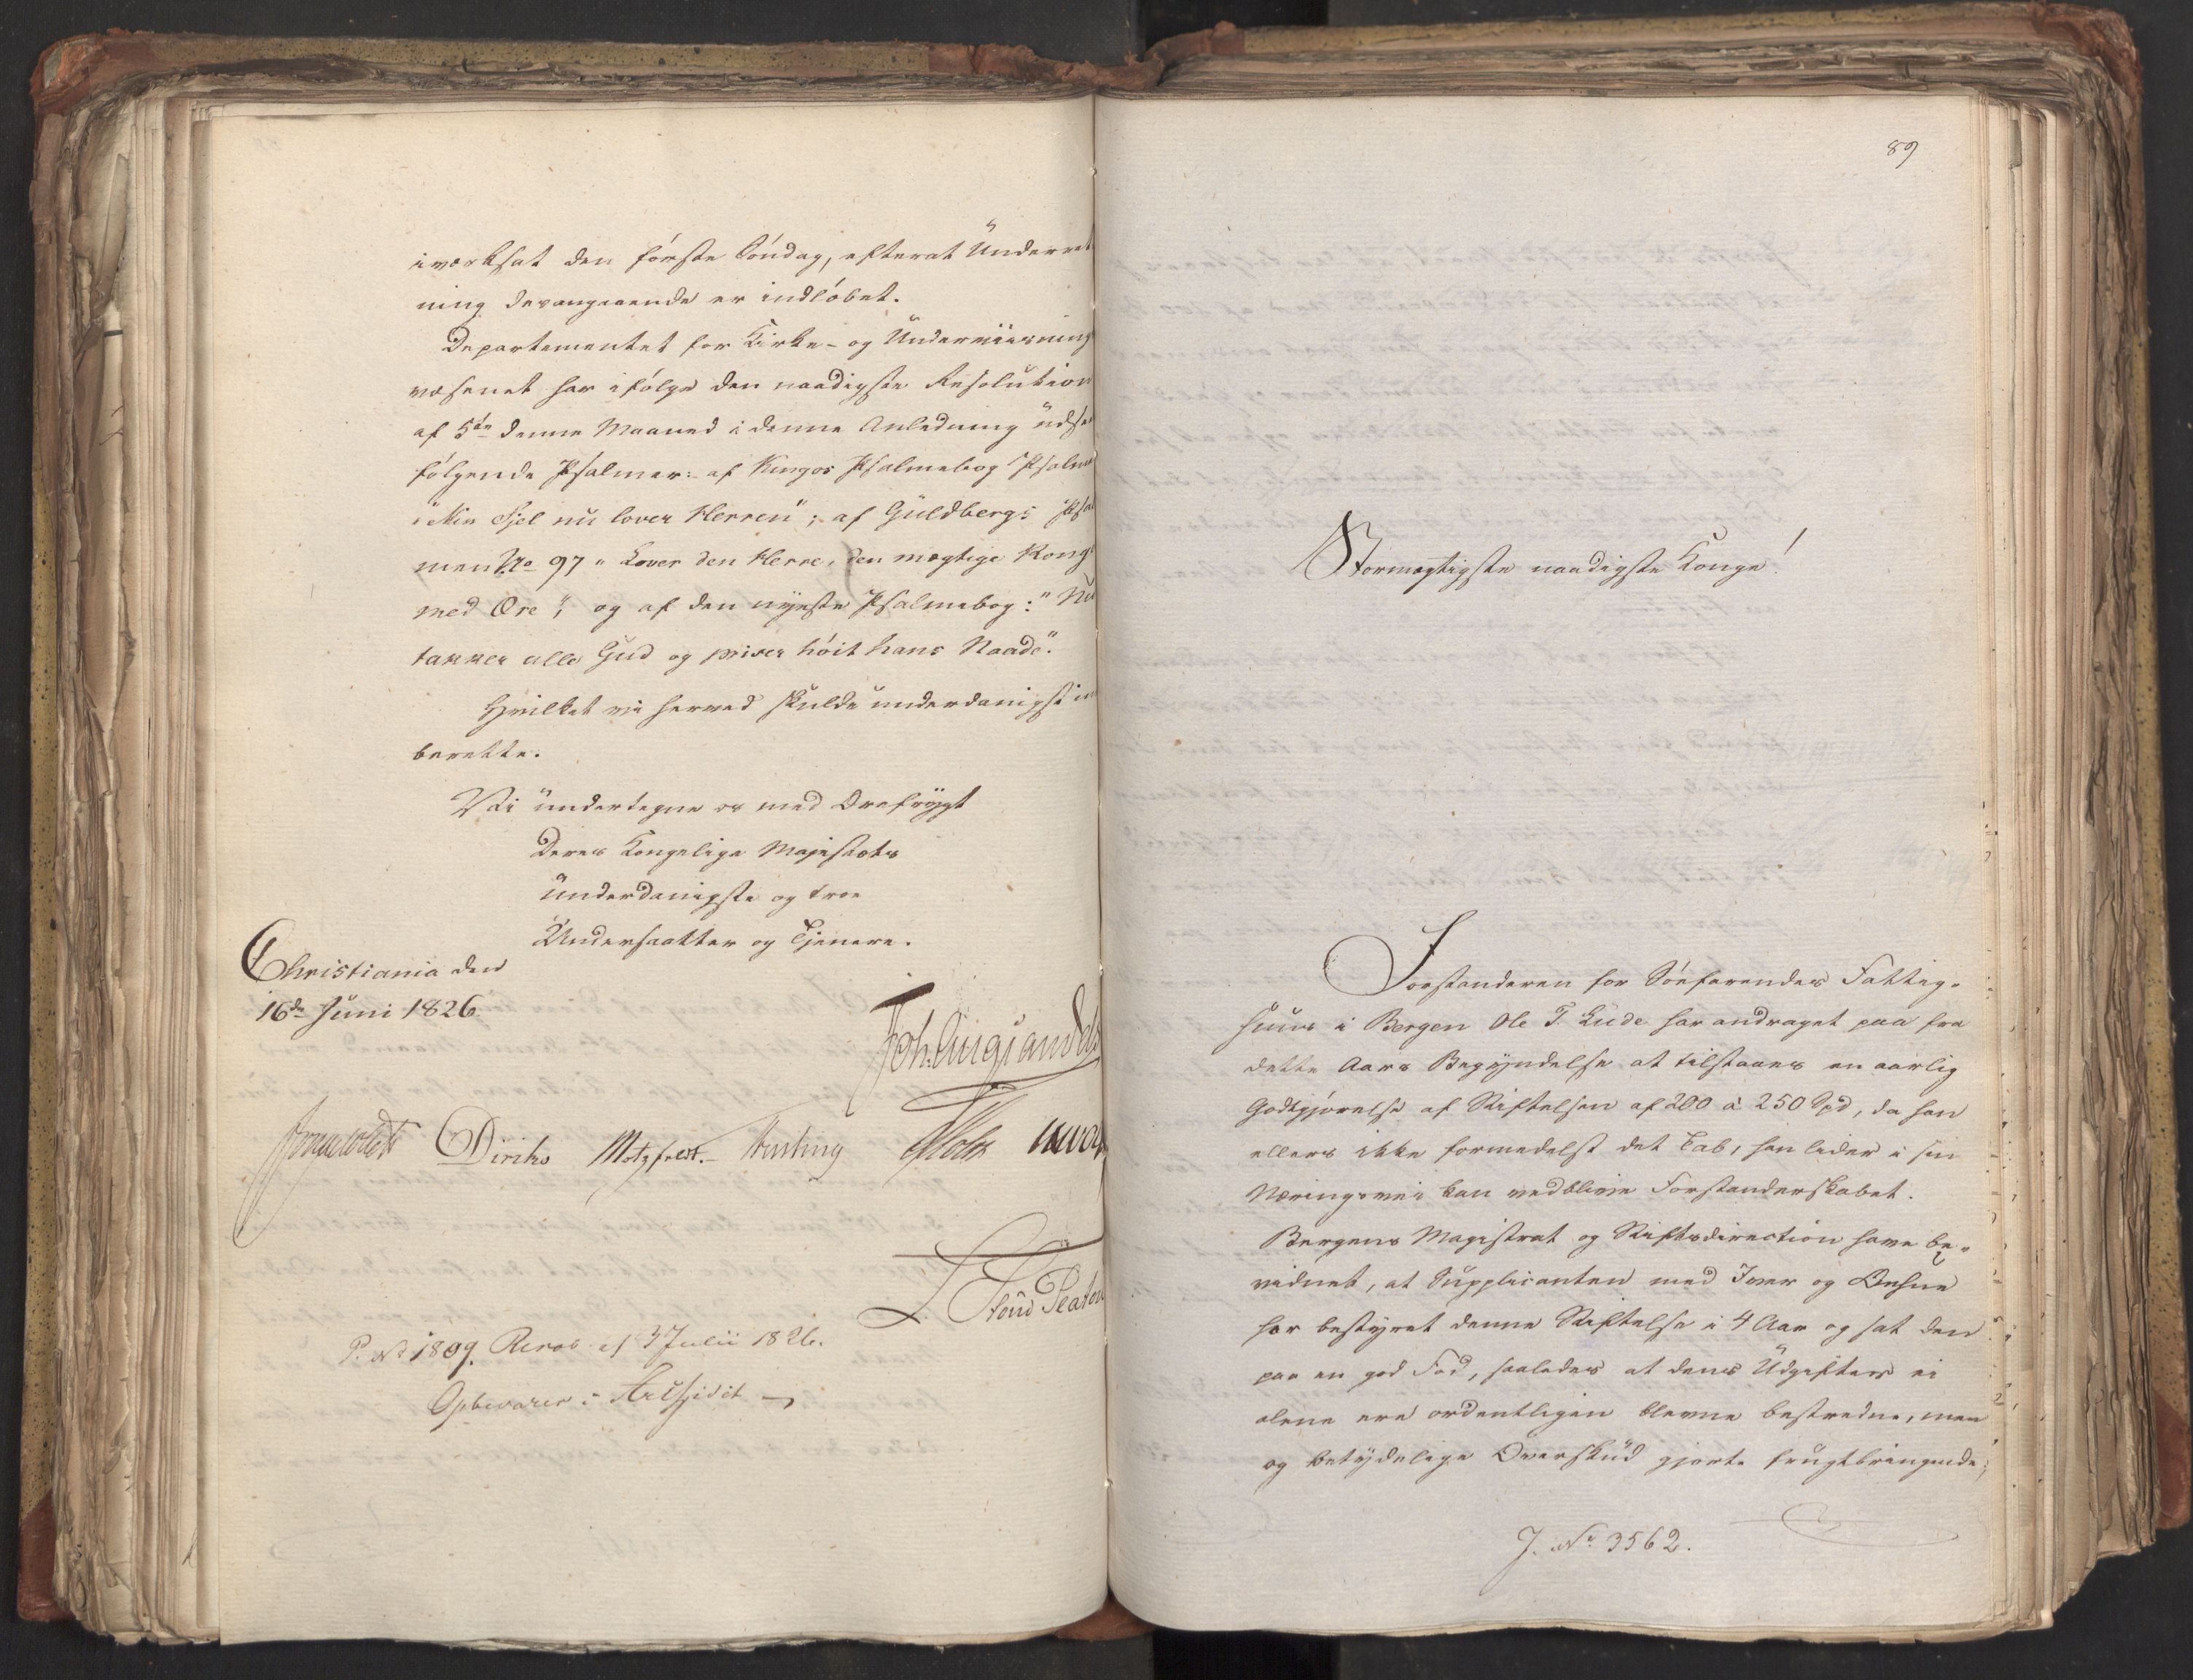 iværksat den første Søndag, efterat Underret
ning desangaaende er indløbet.
Departementet for Kirke- og Underviisnings
væsenet har ifølge den naadigste Resolution
af 5te denne Maaned i denne Anledning udseet
følgende Psalmer: af Kingos Psalmebog Psalmen
"Min Sjel nu lover Herren"; af Guldbergs Psal
men No 97 "Lover den Herre, den mægtige Konge
med Ære", og af den nyeste Psalmebog: "Nu
takker alle Gud og priser høit hans Naade".
Hvilket vi herved skulde underdanigst ind
berette.
Vi undertegne os med Ærefrygt
Deres Kongelige Majestæts
underdanigste og troe
Undersaatter og Tjenere.
Christiania den
16de Juni 1826.
Joh. Aug. Sandels
Diriks Motzfeldt. Fasting Holst
P. No 1809. Resol. af 3 Julii 1826.
Opbevares i Archivet
89
Stormægtigste naadigste Konge!
Forstanderen for Søefarendes Fattig-
huus i Bergen Ole T. Lude har andraget paa fra
dette Aars Begyndelse at tilstaaes en aarlig
Godtgjørelse af Stiftelsen af 200 à 250 Spd, da han
ellers ikke formedelst det Tab, han lider i sin
Næringsvei kan vedblive Forstanderskabet.
Bergens Magistrat og Stiftsdirection have be-
vidnet, at Supplicanten med Iver og Omhue
har bestyret denne Stiftelse i 4 Aar og sat den
paa en god Fod, saaledes at dens Udgifter ei
alene ere ordentligen blevne bestredne, men
og betydelige Overskud gjorte frugtbringende;
J. No 3562.